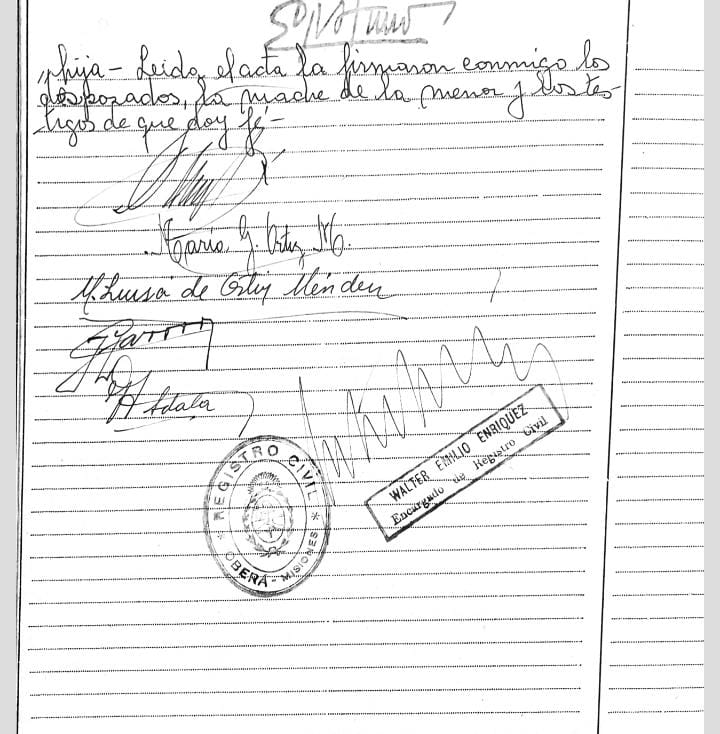 hija - Leida el acta la firmaron conmigo los
desposados, la madre de la menor y los tes-
tigos de que doy fé -
Maria G. Ortiz M.
M. Luisa de Ortiz Méndez
REGISTRO CIVIL
OBERÁ - MISIONES
WALTER EMILIO ENRIQUEZ
Encargado de Registro Civil